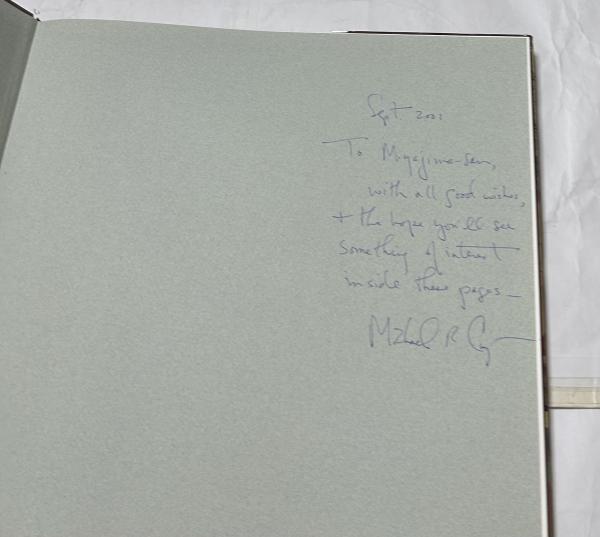 Sept. 2001
To Miyajima-san,
with all good wishes,
+ the hope you'll see
something of interest
inside these pages—
Michael R